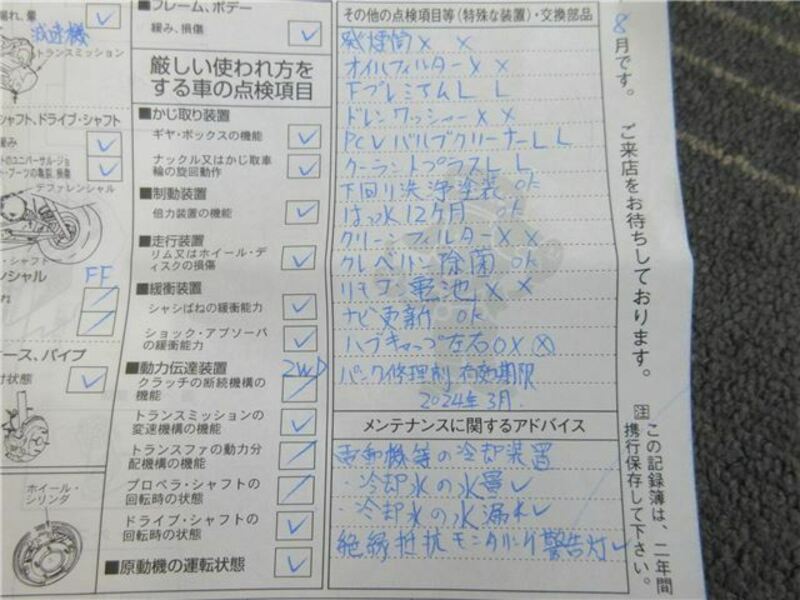 減速機
トランスミッション
シャフト、ドライブ・シャフト
デファレンシャル
FF
ホイール・
シリンダ
■フレーム、ボデー
緩み、損傷
厳しい使われ方を
する車の点検項目
■かじ取り装置
ギヤ・ボックスの機能
ナックル又はかじ取車
輪の旋回動作
■制動装置
倍力装置の機能
■走行装置
リム又はホイール・デ
ィスクの損傷
■緩衝装置
シャシばねの緩衝能力
ショック・アブソーバ
の緩衝能力
■動力伝達装置 2WD
クラッチの断続機構の
機能
トランスミッションの
変速機構の機能
トランスファの動力分
配機構の機能
プロペラ・シャフトの
回転時の状態
ドライブ・シャフトの
回転時の状態
■原動機の運転状態
その他の点検項目等(特殊な装置)・交換部品
発煙筒 × ×
オイルフィルター × ×
下プレミアム L L
ドレンワッシャー × ×
PCVバルブクリーナー L L
クーラントプラス L L
下回り洗浄塗装 ok
はっ水12ヶ月 ok
クリーンフィルター × ×
クレベリン除菌 ok
リモコン電池 × ×
ナビ更新 ok
ハブキャップ左右○× ⓧ
パンク修理剤 有効期限
2024年3月.
メンテナンスに関するアドバイス
電動機等の冷却装置
・冷却水の水量✓
・冷却水の水漏れ✓
絶縁抵抗モニタリング警告灯✓
8月です。 ご来店をお待ちしております。
注 この記録簿は、二年間
携行保存して下さい。